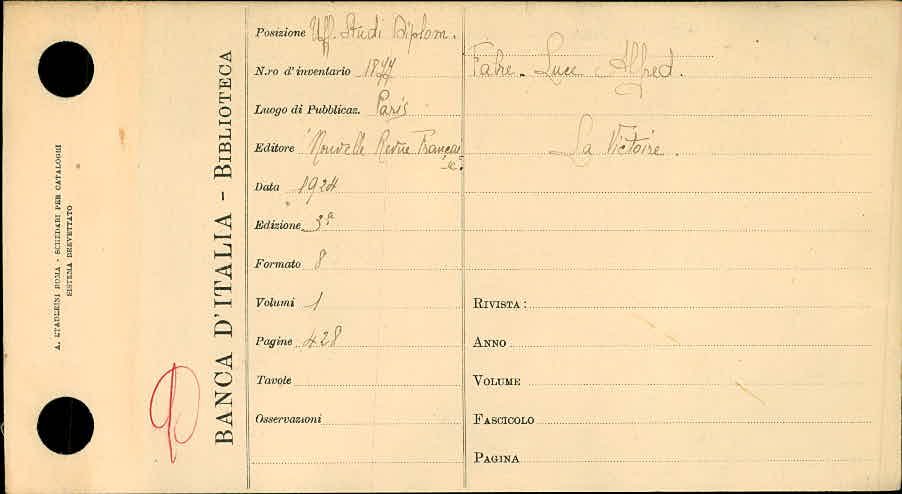 A. STADERINI ROMA - SCHEDARI PER CATALOGHI
SISTEMA BREVETTATO
BANCA D'ITALIA - BIBLIOTECA
Posizione Uff. Studi Diplom.
N.ro d'inventario 1877
Luogo di Pubblicaz. Paris
Editore Nouvelle Revue Françai
se.
Data 1924
Edizione 3ª
Formato 8
Volumi 1
Pagine 428
Tavole
Osservazioni
Fabre-Luce Alfred.
La Victoire.
RIVISTA:
ANNO
VOLUME
FASCICOLO
PAGINA